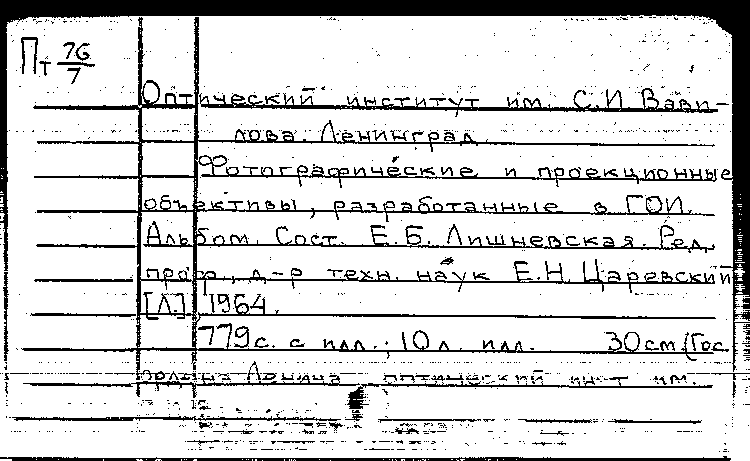 Пт 76/7
Оптический институт им. С.И Вави-
лова. Ленинград
Фотографические и проекционные
объективы, разработанные в ГОИ.
Альбом. Сост. Е.Б. Лишневская. Ред.
проф., д-р техн. наук Е.Н. Царевский
[Л.], 1964.
779 с. с илл.; 10 л. илл. 30 см (Гос.
ордена Ленина оптический ин-т им.